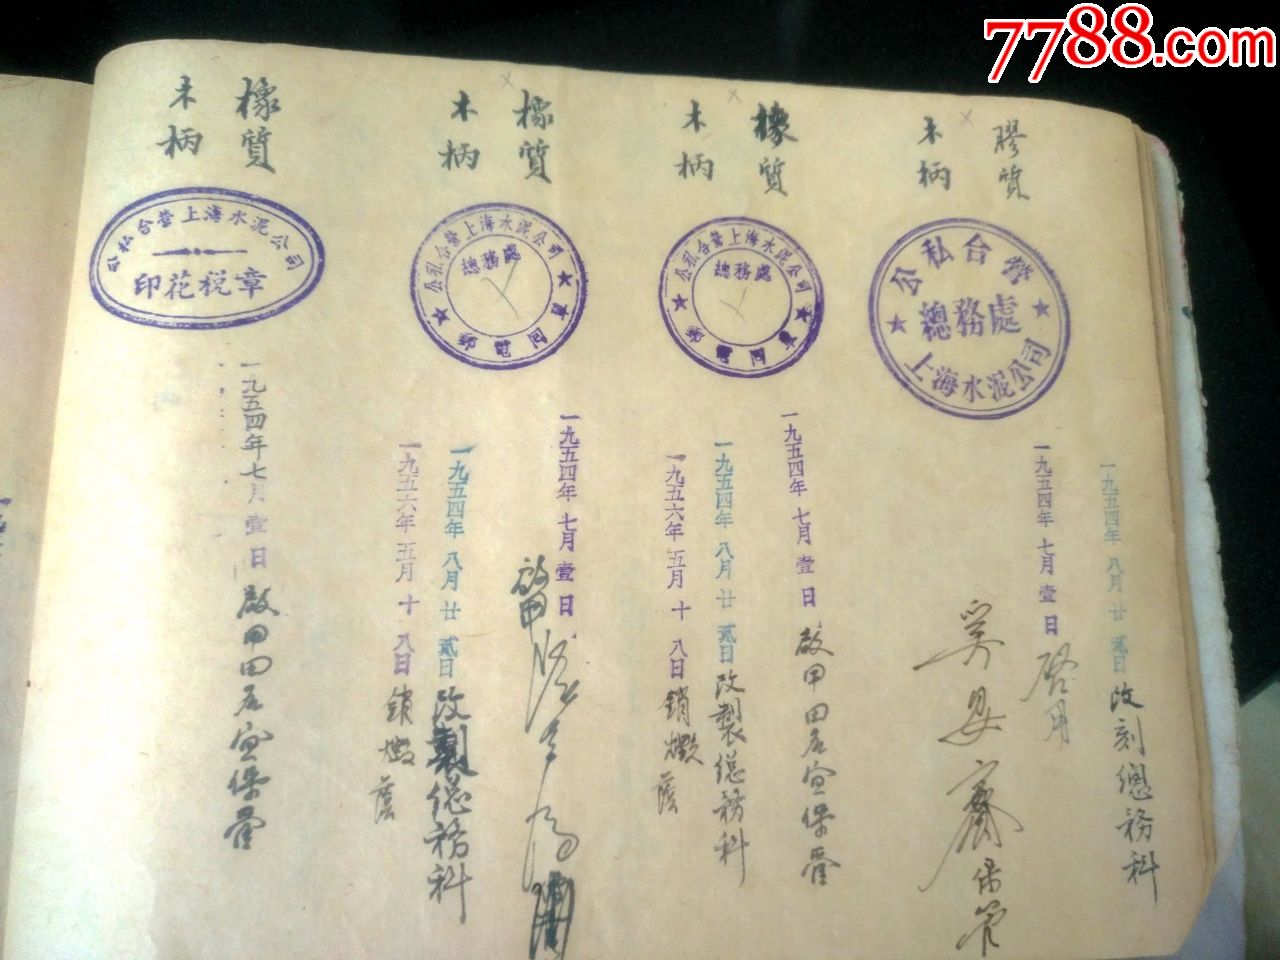 7788.com
膠質
木柄
公私合營
總務處
上海水泥公司
一九五四年八月廿貳日改刻總務科
一九五四年七月壹日啓用
保管
橡質
木柄
公私合營上海水泥公司
總務處
郵電回單
一九五四年七月壹日啟用田居宜保管
一九五四年八月廿貳日改製總務科
一九五六年五月十八日銷燬
橡質
木柄
公私合營上海水泥公司
總務處
郵電回單
一九五四年七月壹日
啟用
一九五四年八月廿貳日改製總務科
一九五六年五月十八日銷燬
橡質
木柄
公私合營上海水泥公司
印花稅章
一九五四年七月壹日啟用田居宜保管